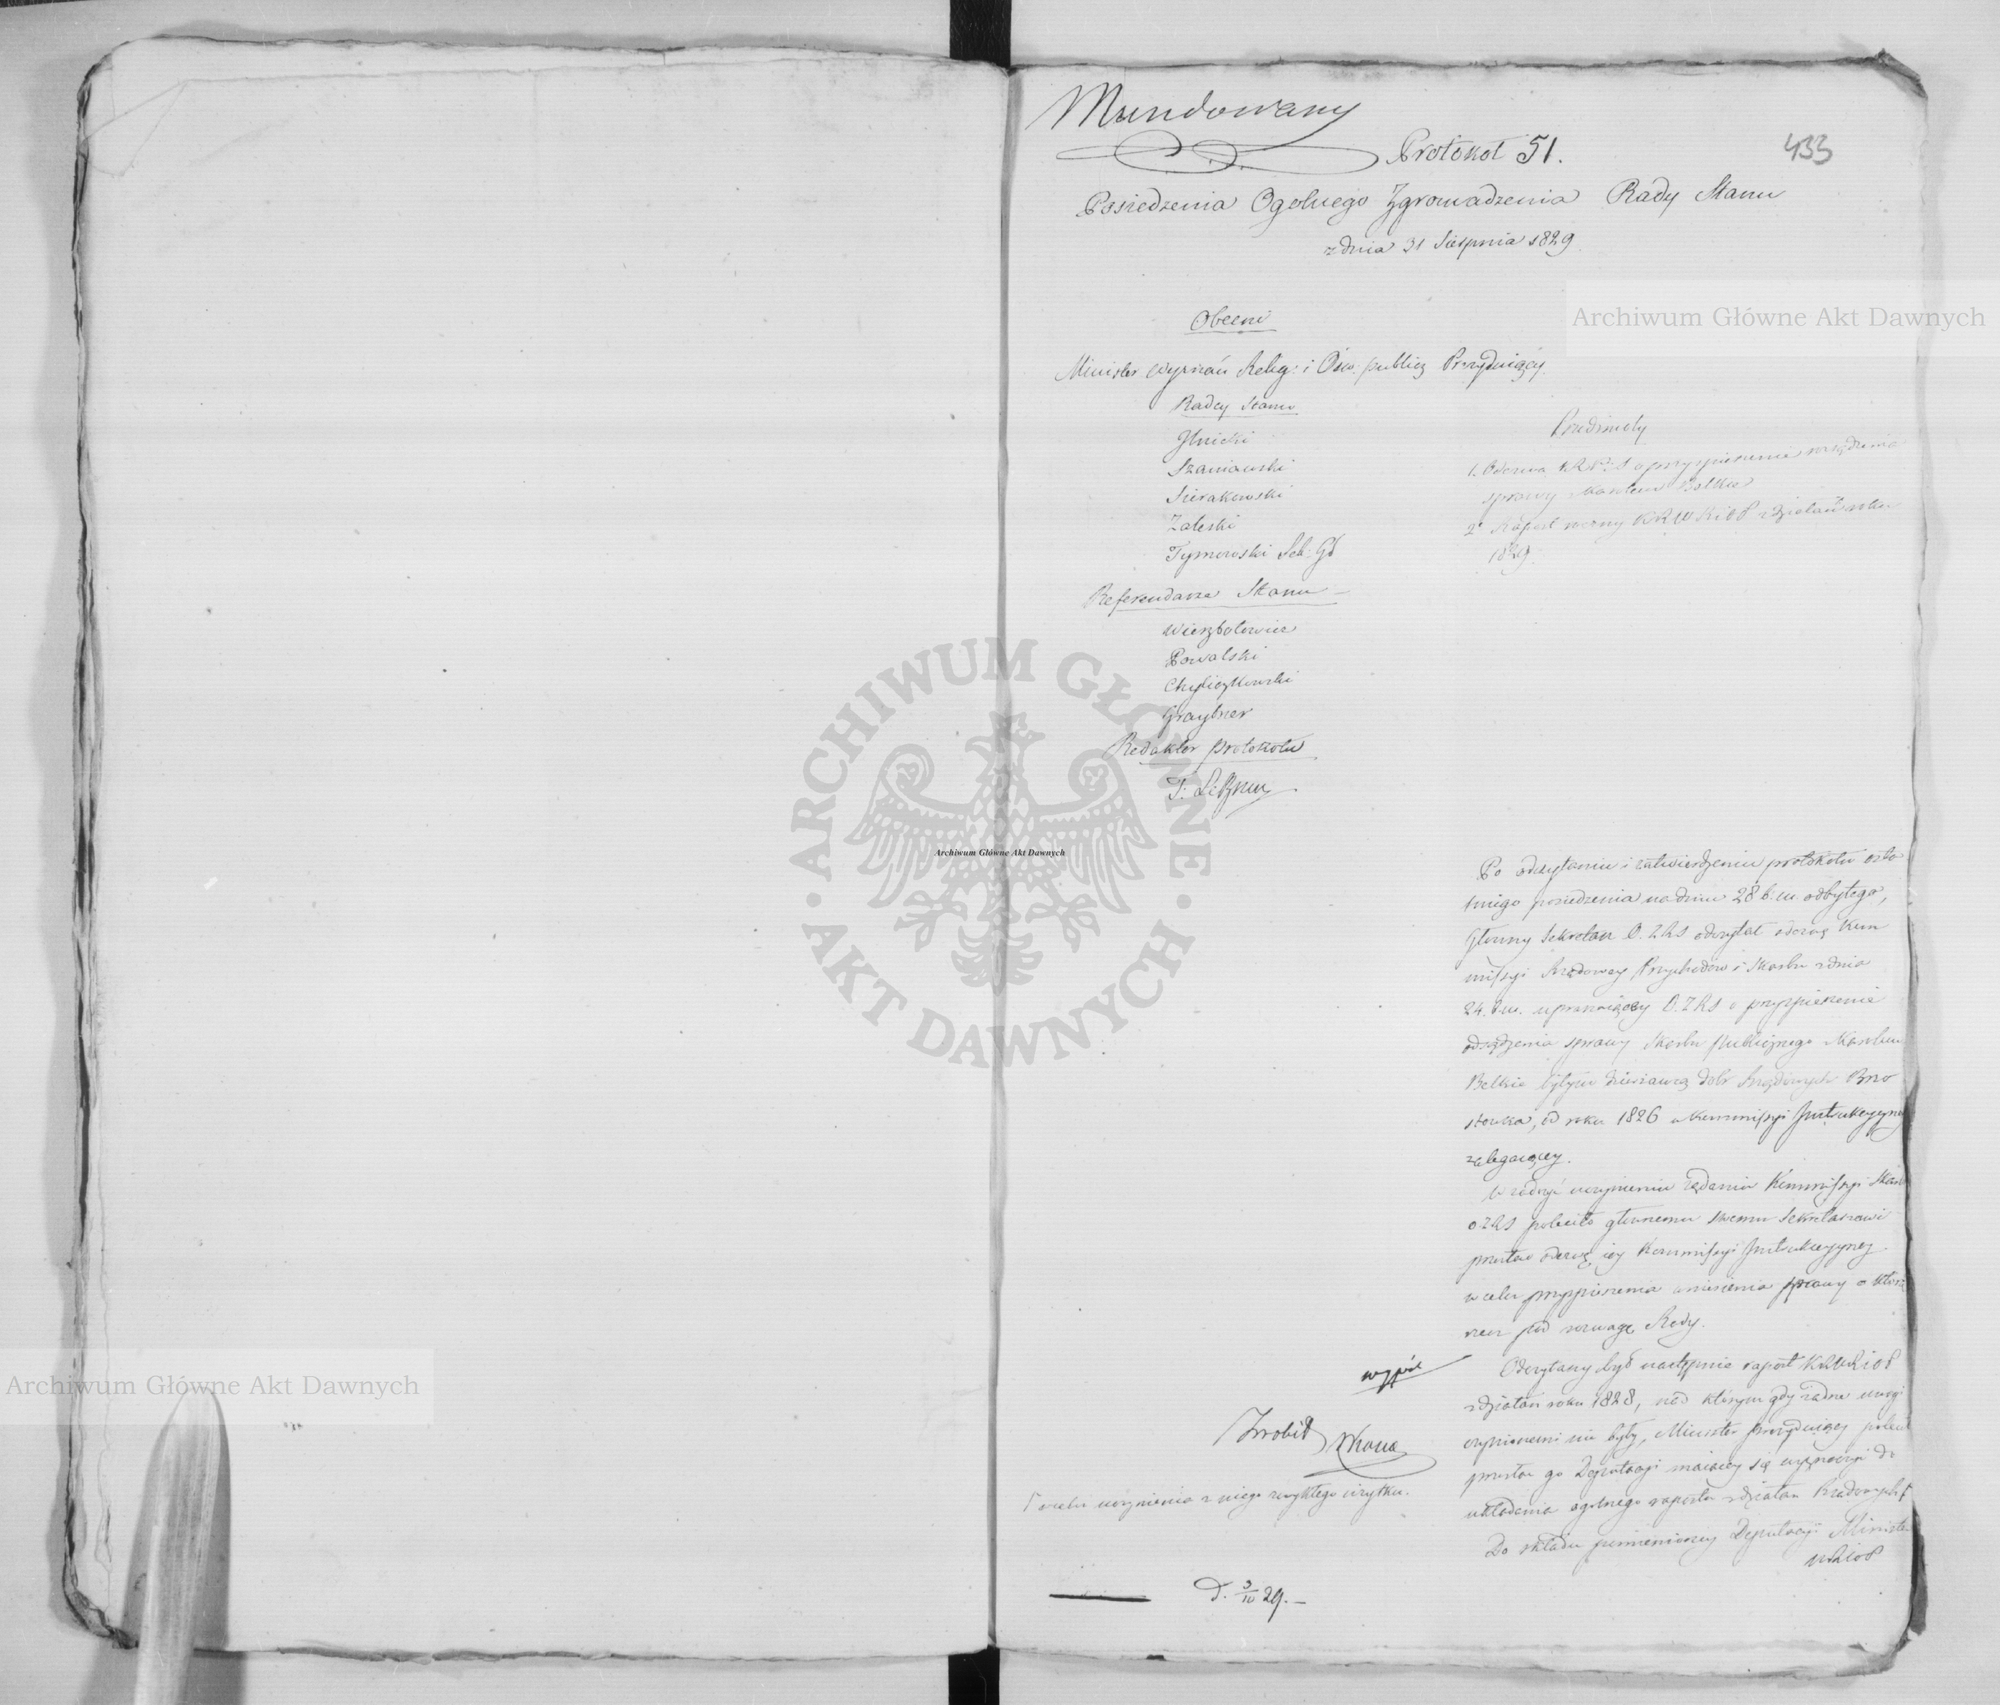 Mundowany
Protokoł 51.
433
Posiedzenia Ogolnego Zgromadzenia Rady Stanu
z dnia 31 Sierpnia 1829.
Archiwum Główne Akt Dawnych
Obecni
Minister Wyznań Relig: i Ośw: publicz Prezyduiący.
Radcy Stanu
Szaniawski
Sierakowski
Zaleski
Tymowski Sek: Gł
Referendarze Stanu
Wierzbołowicz
Kowalski
Chyliczkowski
Graybner
Redaktor protokołu
Przedmioty
1. Odezwa KRPiS o przyspieszenie osądzenia
sprawy Skarbu
2° Raport roczny KRWRiOP z działań roku
1829.
ARCHIWUM GŁÓWNE
AKT DAWNYCH
Archiwum Główne Akt Dawnych
Po odczytaniu i zatwierdzeniu protokołu osta
tniego posiedzenia na dniu 28 b.m. odbytego,
Główny Sekretarz O.Z.R.S odczytał odezwę Kom
missyi Rządowey Przychodow i Skarbu z dnia
24. b.m. upraszaiącey O.Z.R.S o przyspieszenie
osądzenia sprawy Skarbu publicznego
byłym dzierżawcą dobr Rządowych Brzo
stowka, od roku 1826 w Kommissyi Instrukcyyney
zalegaiącey.
W zadosyć uczynieniu żądania Kommissyi Skarbu
OZRS poleciło głownemu swemu Sekretarzowi
przesłać odezwę iey Kommissyi Instrukcyyney
w celu przyspieszenia wniesienia sprawy o którą
rzecz pod rozwagę Rady.
Odczytany był następnie raport KRWRiOP
z działań roku 1828, nad którym gdy żadne uwagi
czynionemi nie były, Minister Prezyduiący polecił
przesłać go Deputacyi maiącey się wyznaczyć do
układania ogolnego raportu z działań Rządowych
Do składu pomienioney Deputacyi Minister
WRiOP
wypis
Zrobił
w celu uczynienia z niego zwykłego użytku.
D. 3/IV 29. —
Archiwum Główne Akt Dawnych